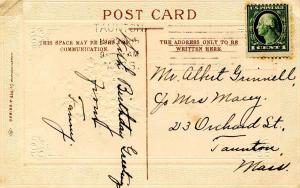 POST CARD
TAUNTON
THIS SPACE MAY BE USED FOR
COMMUNICATION.
THE ADDRESS ONLY TO BE
WRITTEN HERE.
With Birthday Greetings
from
Fanny.
Mr. Albert Grinnell,
c/o Mrs Macey
23 Orchard St.,
Taunton
Mass.
1 CENT 1